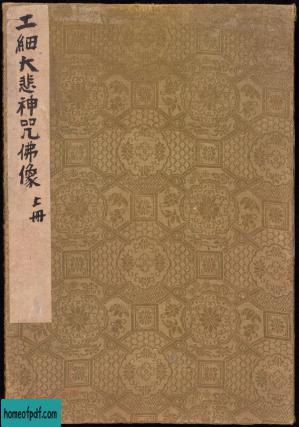 工細大悲神咒佛像
上冊
homeofpdf.com